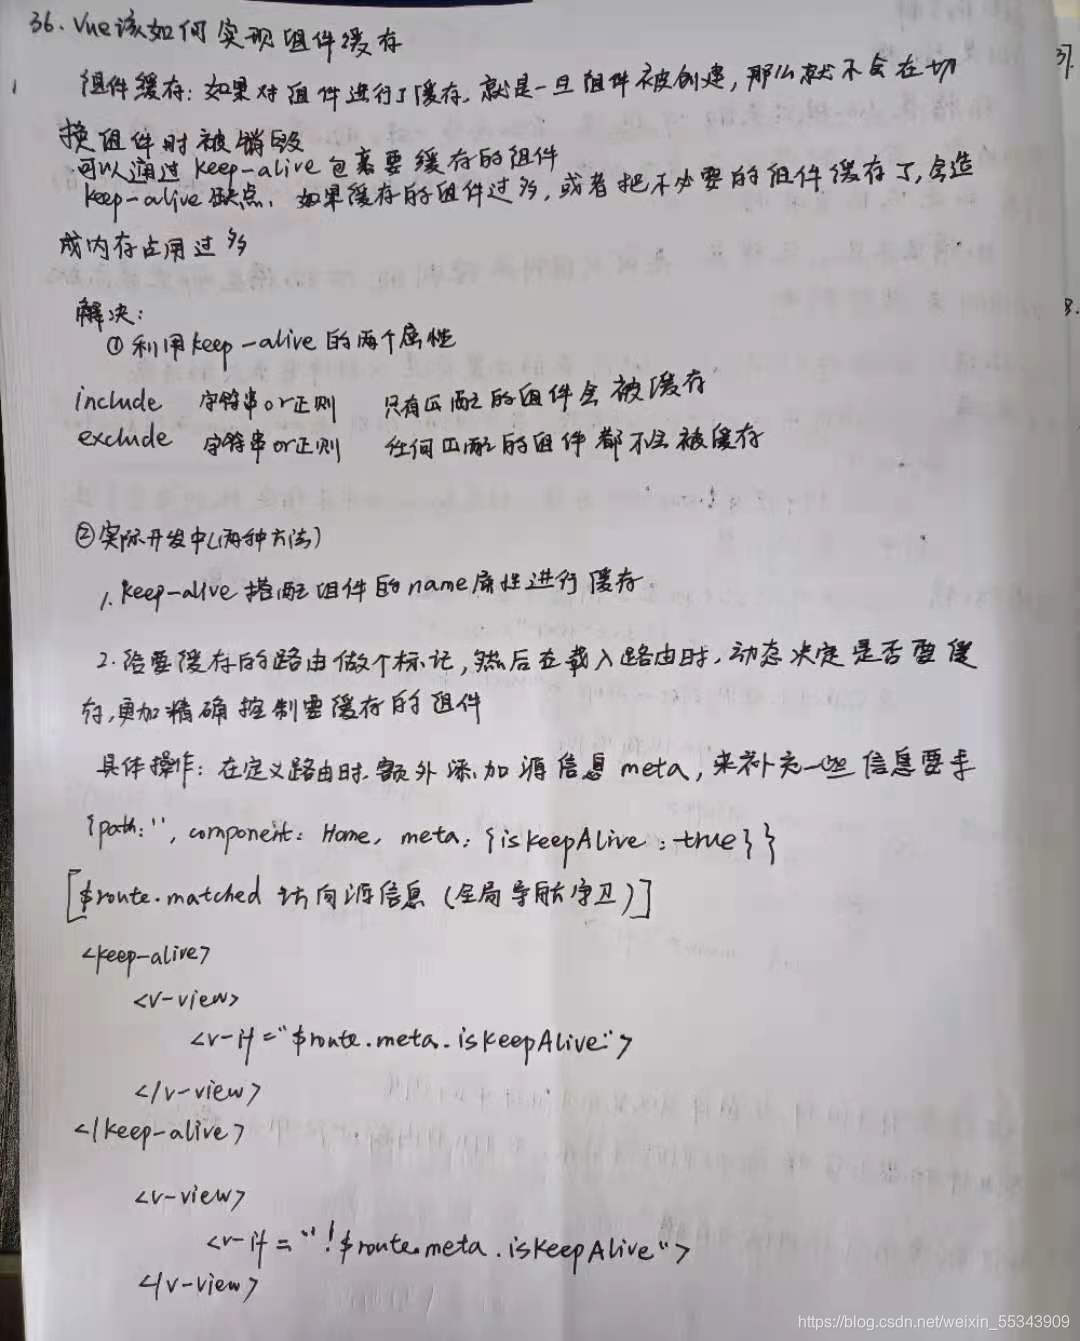 36. Vue该如何实现组件缓存
组件缓存: 如果对组件进行了缓存, 就是一旦组件被创建, 那么就不会在切
换组件时被销毁
可以通过 keep-alive 包裹要缓存的组件
keep-alive 缺点, 如果缓存的组件过多, 或者把不必要的组件缓存了, 会造
成内存占用过多
解决:
① 利用keep-alive 的两个属性
include 字符串or正则 只有匹配的组件会被缓存
exclude 字符串or正则 任何匹配的组件都不会被缓存
②实际开发中(两种方法)
1. keep-alive 搭配组件的name属性进行缓存
2. 给要缓存的路由做个标记, 然后在载入路由时, 动态决定是否要缓
存, 更加精确控制要缓存的组件
具体操作: 在定义路由时额外添加源信息 meta, 来补充一些信息要手
{path: '', component: Home, meta: {iskeepAlive: true}}
[$route.matched 访问源信息 (全局导航守卫)]
<keep-alive>
<v-view>
<v-if="$route.meta.iskeepAlive">
</v-view>
</keep-alive>
<v-view>
<v-if = "!$route.meta.iskeepAlive">
</v-view>
https://blog.csdn.net/weixin_55343909